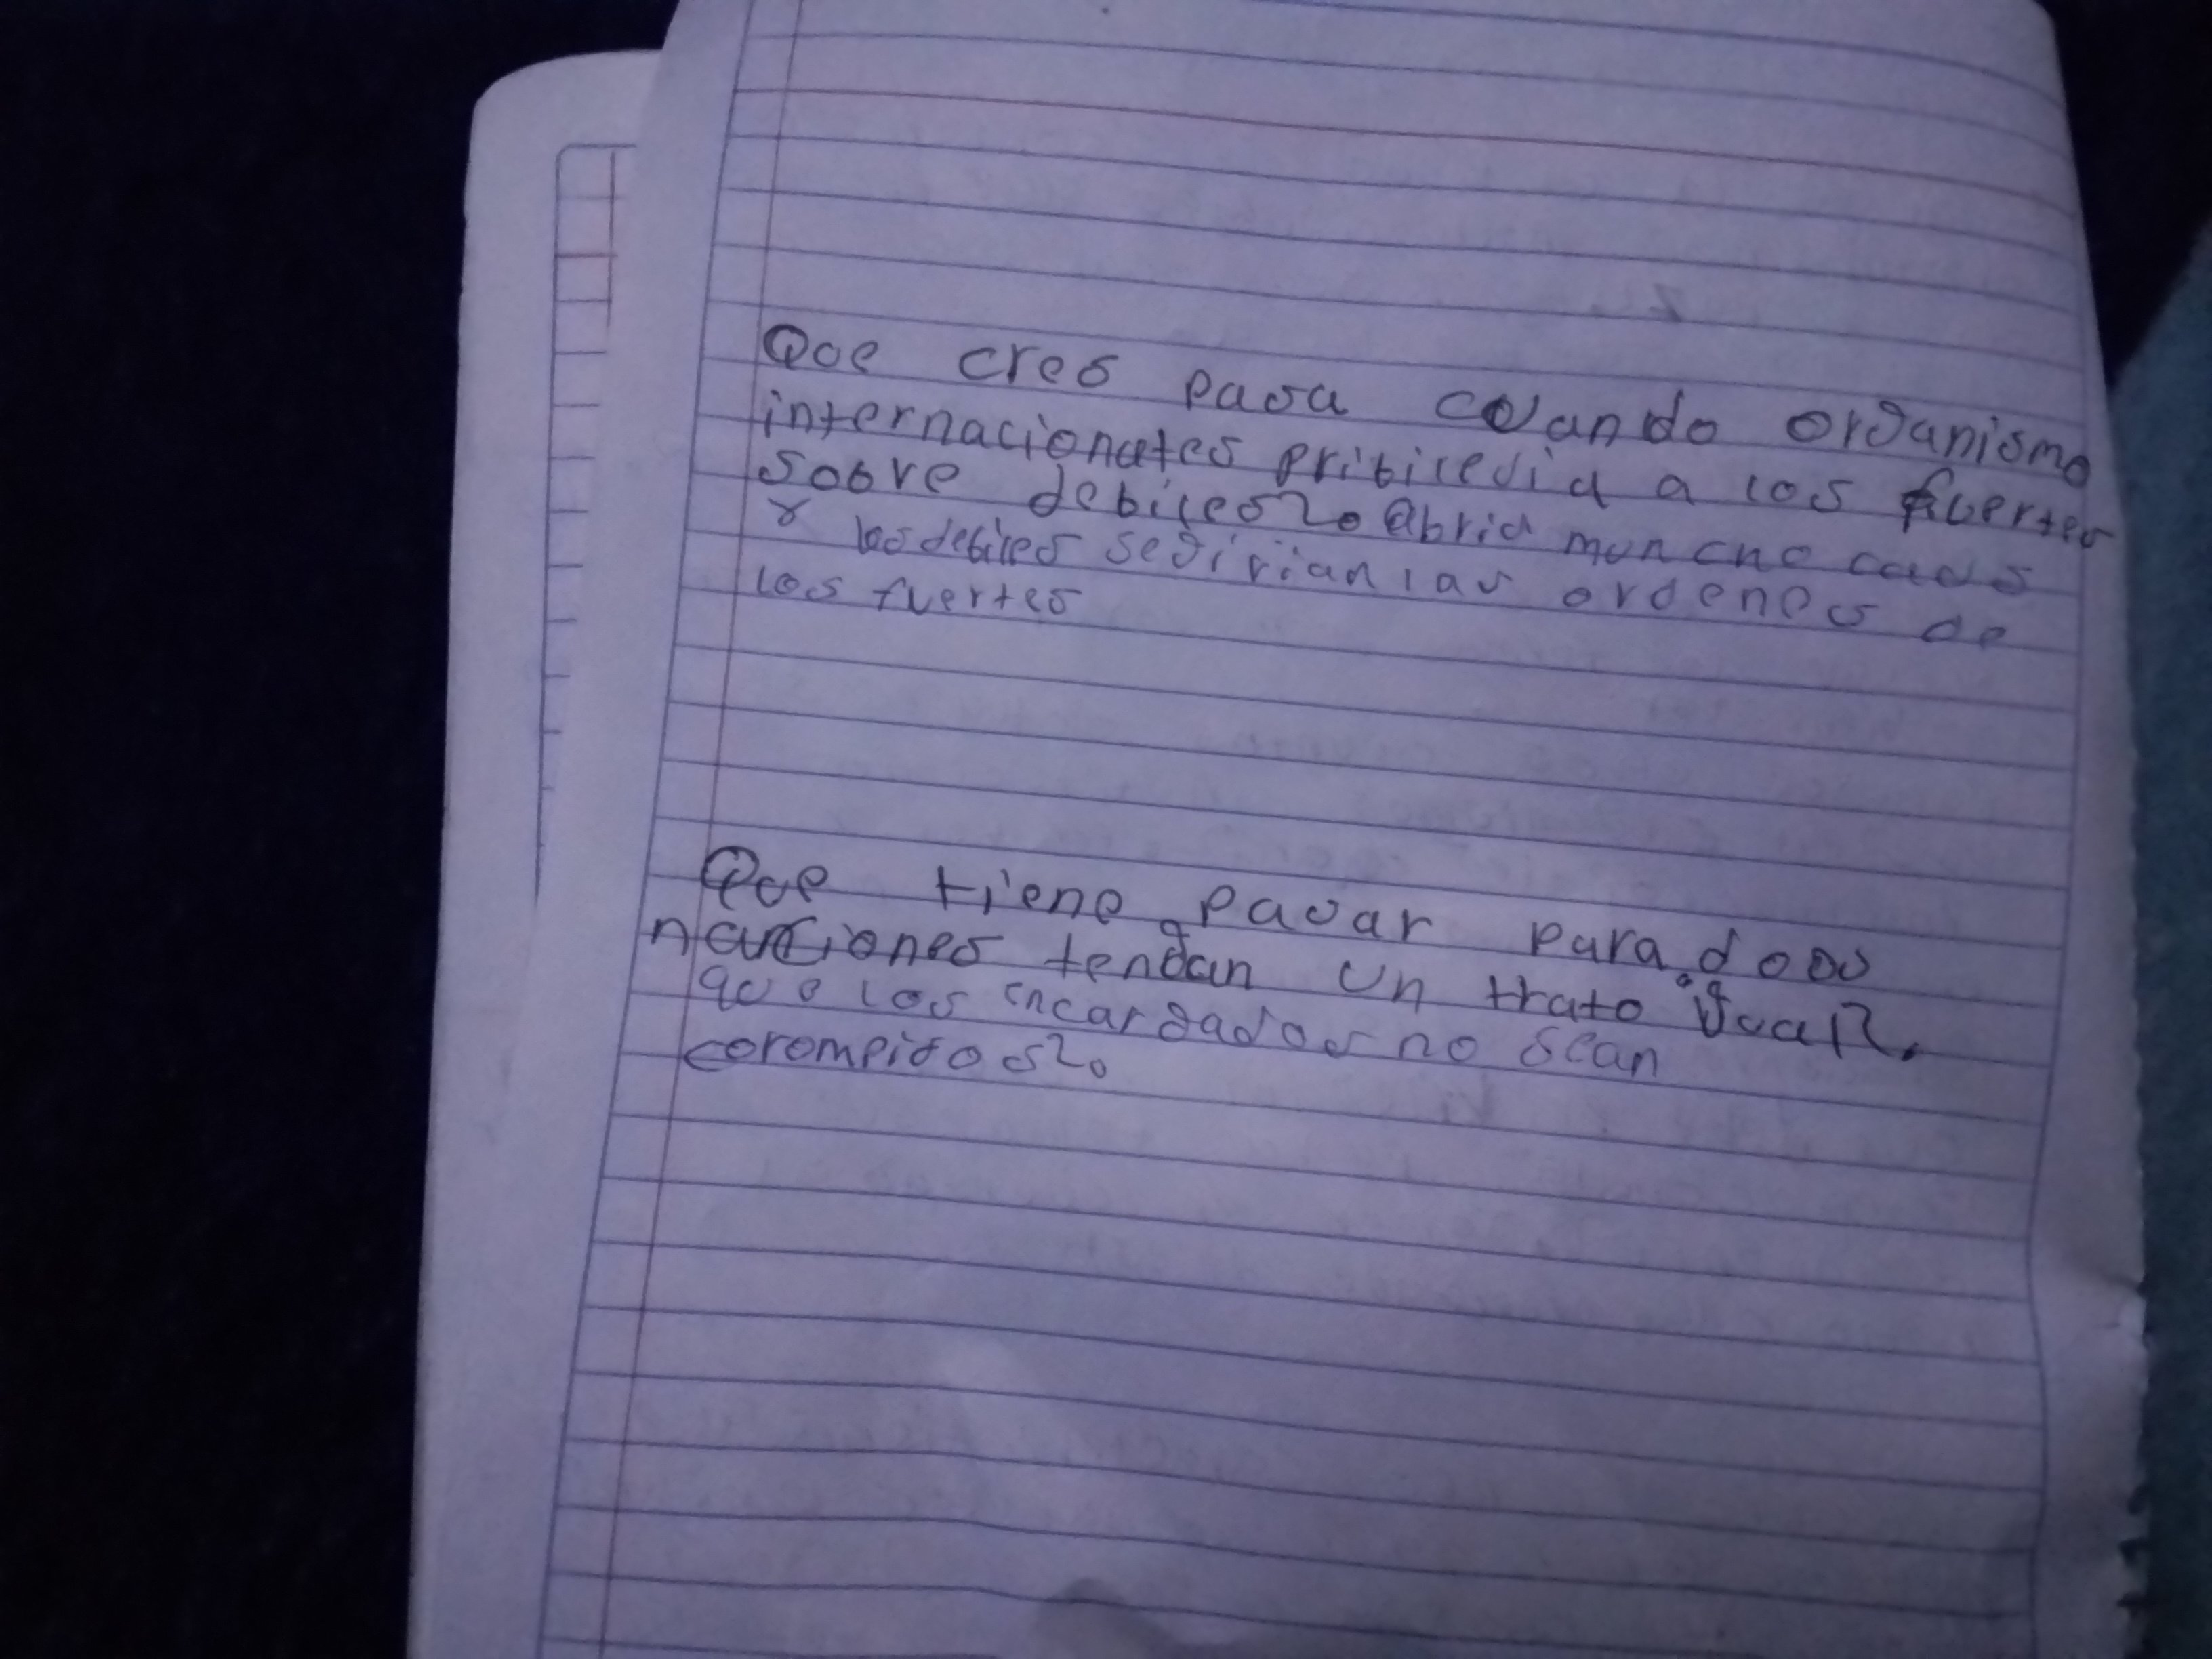 Que cres pasa cuando organismo
internacionales pribilegia a los fuertes
sobre debiles? Abria muncho caos
y los debiles segirian las ordenes de
los fuertes
Que tiene pasar para doos
naciones tengan un trato igual?.
que los encargados no sean
corompidos?